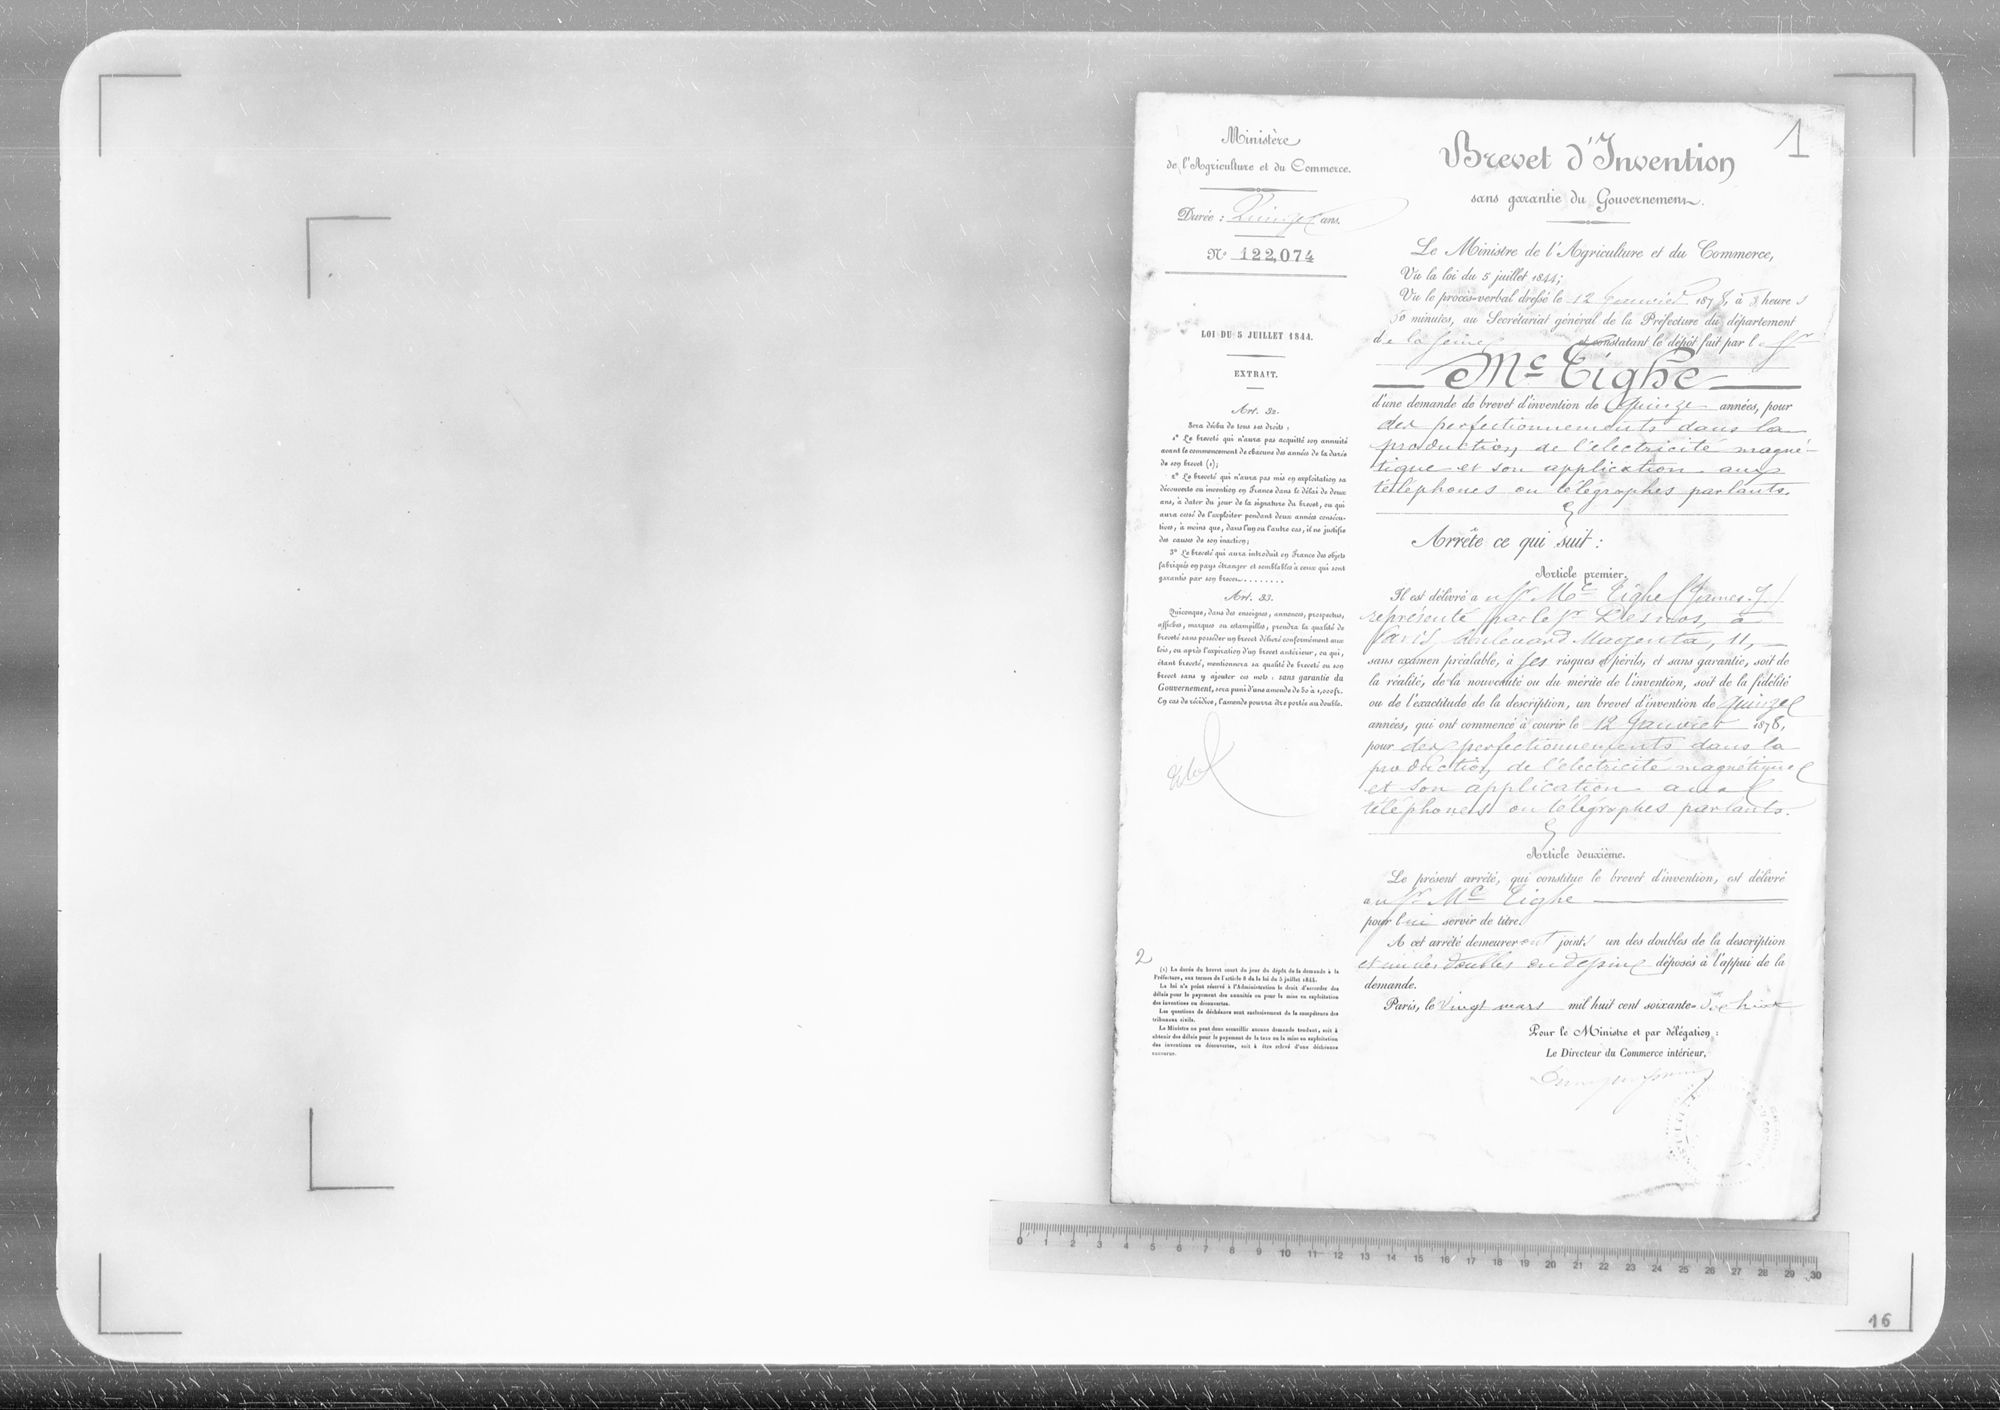 Ministère
de l'Agriculture et du Commerce.
Durée : Quinze ans.
N° 122,074
LOI DU 5 JUILLET 1844.
EXTRAIT.
Art. 32.
Sera déchu de tous ses droits :
1° Le breveté qui n'aura pas acquitté son annuité
avant le commencement de chacune des années de la durée
de son brevet (1);
2° Le breveté qui n'aura pas mis en exploitation sa
découverte ou invention en France dans le délai de deux
ans, à dater du jour de la signature du brevet, ou qui
aura cessé de l'exploiter pendant deux années consécu-
tives, à moins que, dans l'un ou l'autre cas, il ne justifie
des causes de son inaction;
3° Le breveté qui aura introduit en France des objets
fabriqués en pays étranger et semblables à ceux qui sont
garantis par son brevet........
Art. 33.
Quiconque, dans des enseignes, annonces, prospectus,
affiches, marques ou estampilles, prendra la qualité de
breveté sans posséder un brevet délivré conformément aux
lois, ou après l'expiration d'un brevet antérieur, ou qui,
étant breveté, mentionnera sa qualité de breveté ou son
brevet sans y ajouter ces mots : sans garantie du
Gouvernement, sera puni d'une amende de 50 à 1,000 fr.
En cas de récidive, l'amende pourra être portée au double.
2
(1) La durée du brevet court du jour du dépôt de la demande à la
Préfecture, aux termes de l'article 8 de la loi du 5 juillet 1844.
La loi n'a point réservé à l'Administration le droit d'accorder des
délais pour le payement des annuités ou pour la mise en exploitation
des inventions ou découvertes.
Les questions de déchéance sont exclusivement de la compétence des
tribunaux civils.
Le Ministre ne peut donc accueillir aucune demande tendant, soit à
obtenir des délais pour le payement de la taxe ou la mise en exploitation
des inventions ou découvertes, soit à être relevé d'une déchéance
encourue.
1
Brevet d'Invention
sans garantie du Gouvernement.
Le Ministre de l'Agriculture et du Commerce,
Vu la loi du 5 juillet 1844;
Vu le procès-verbal dressé le 12 Janvier 1878, à 3 heures
50 minutes, au Secrétariat général de la Préfecture du département
de la Seine et constatant le dépôt fait par le Sr
Mc Tighe
d'une demande de brevet d'invention de quinze années, pour
des perfectionnements dans la
production de l'électricité magné-
tique et son application aux
téléphones ou télégraphes parlants.
Arrête ce qui suit :
Article premier.
Il est délivré au Sr Mc Tighe (James J.)
représenté par le Sr Desnos, à
Paris, boulevard Magenta, 11,
sans examen préalable, à ses risques et périls, et sans garantie, soit de
la réalité, de la nouveauté ou du mérite de l'invention, soit de la fidélité
ou de l'exactitude de la description, un brevet d'invention de quinze
années, qui ont commencé à courir le 12 Janvier 1878,
pour des perfectionnements dans la
production de l'électricité magnétique
et son application aux
téléphones ou télégraphes parlants.
Article deuxième.
Le présent arrêté, qui constitue le brevet d'invention, est délivré
au Sr Mc Tighe
pour lui servir de titre.
A cet arrêté demeureront joints un des doubles de la description
et un des doubles du dessin déposés à l'appui de la
demande.
Paris, le vingt mars mil huit cent soixante-dix huit
Pour le Ministre et par délégation :
Le Directeur du Commerce intérieur,
0 1 2 3 4 5 6 7 8 9 10 11 12 13 14 15 16 17 18 19 20 21 22 23 24 25 26 27 28 29 30
16